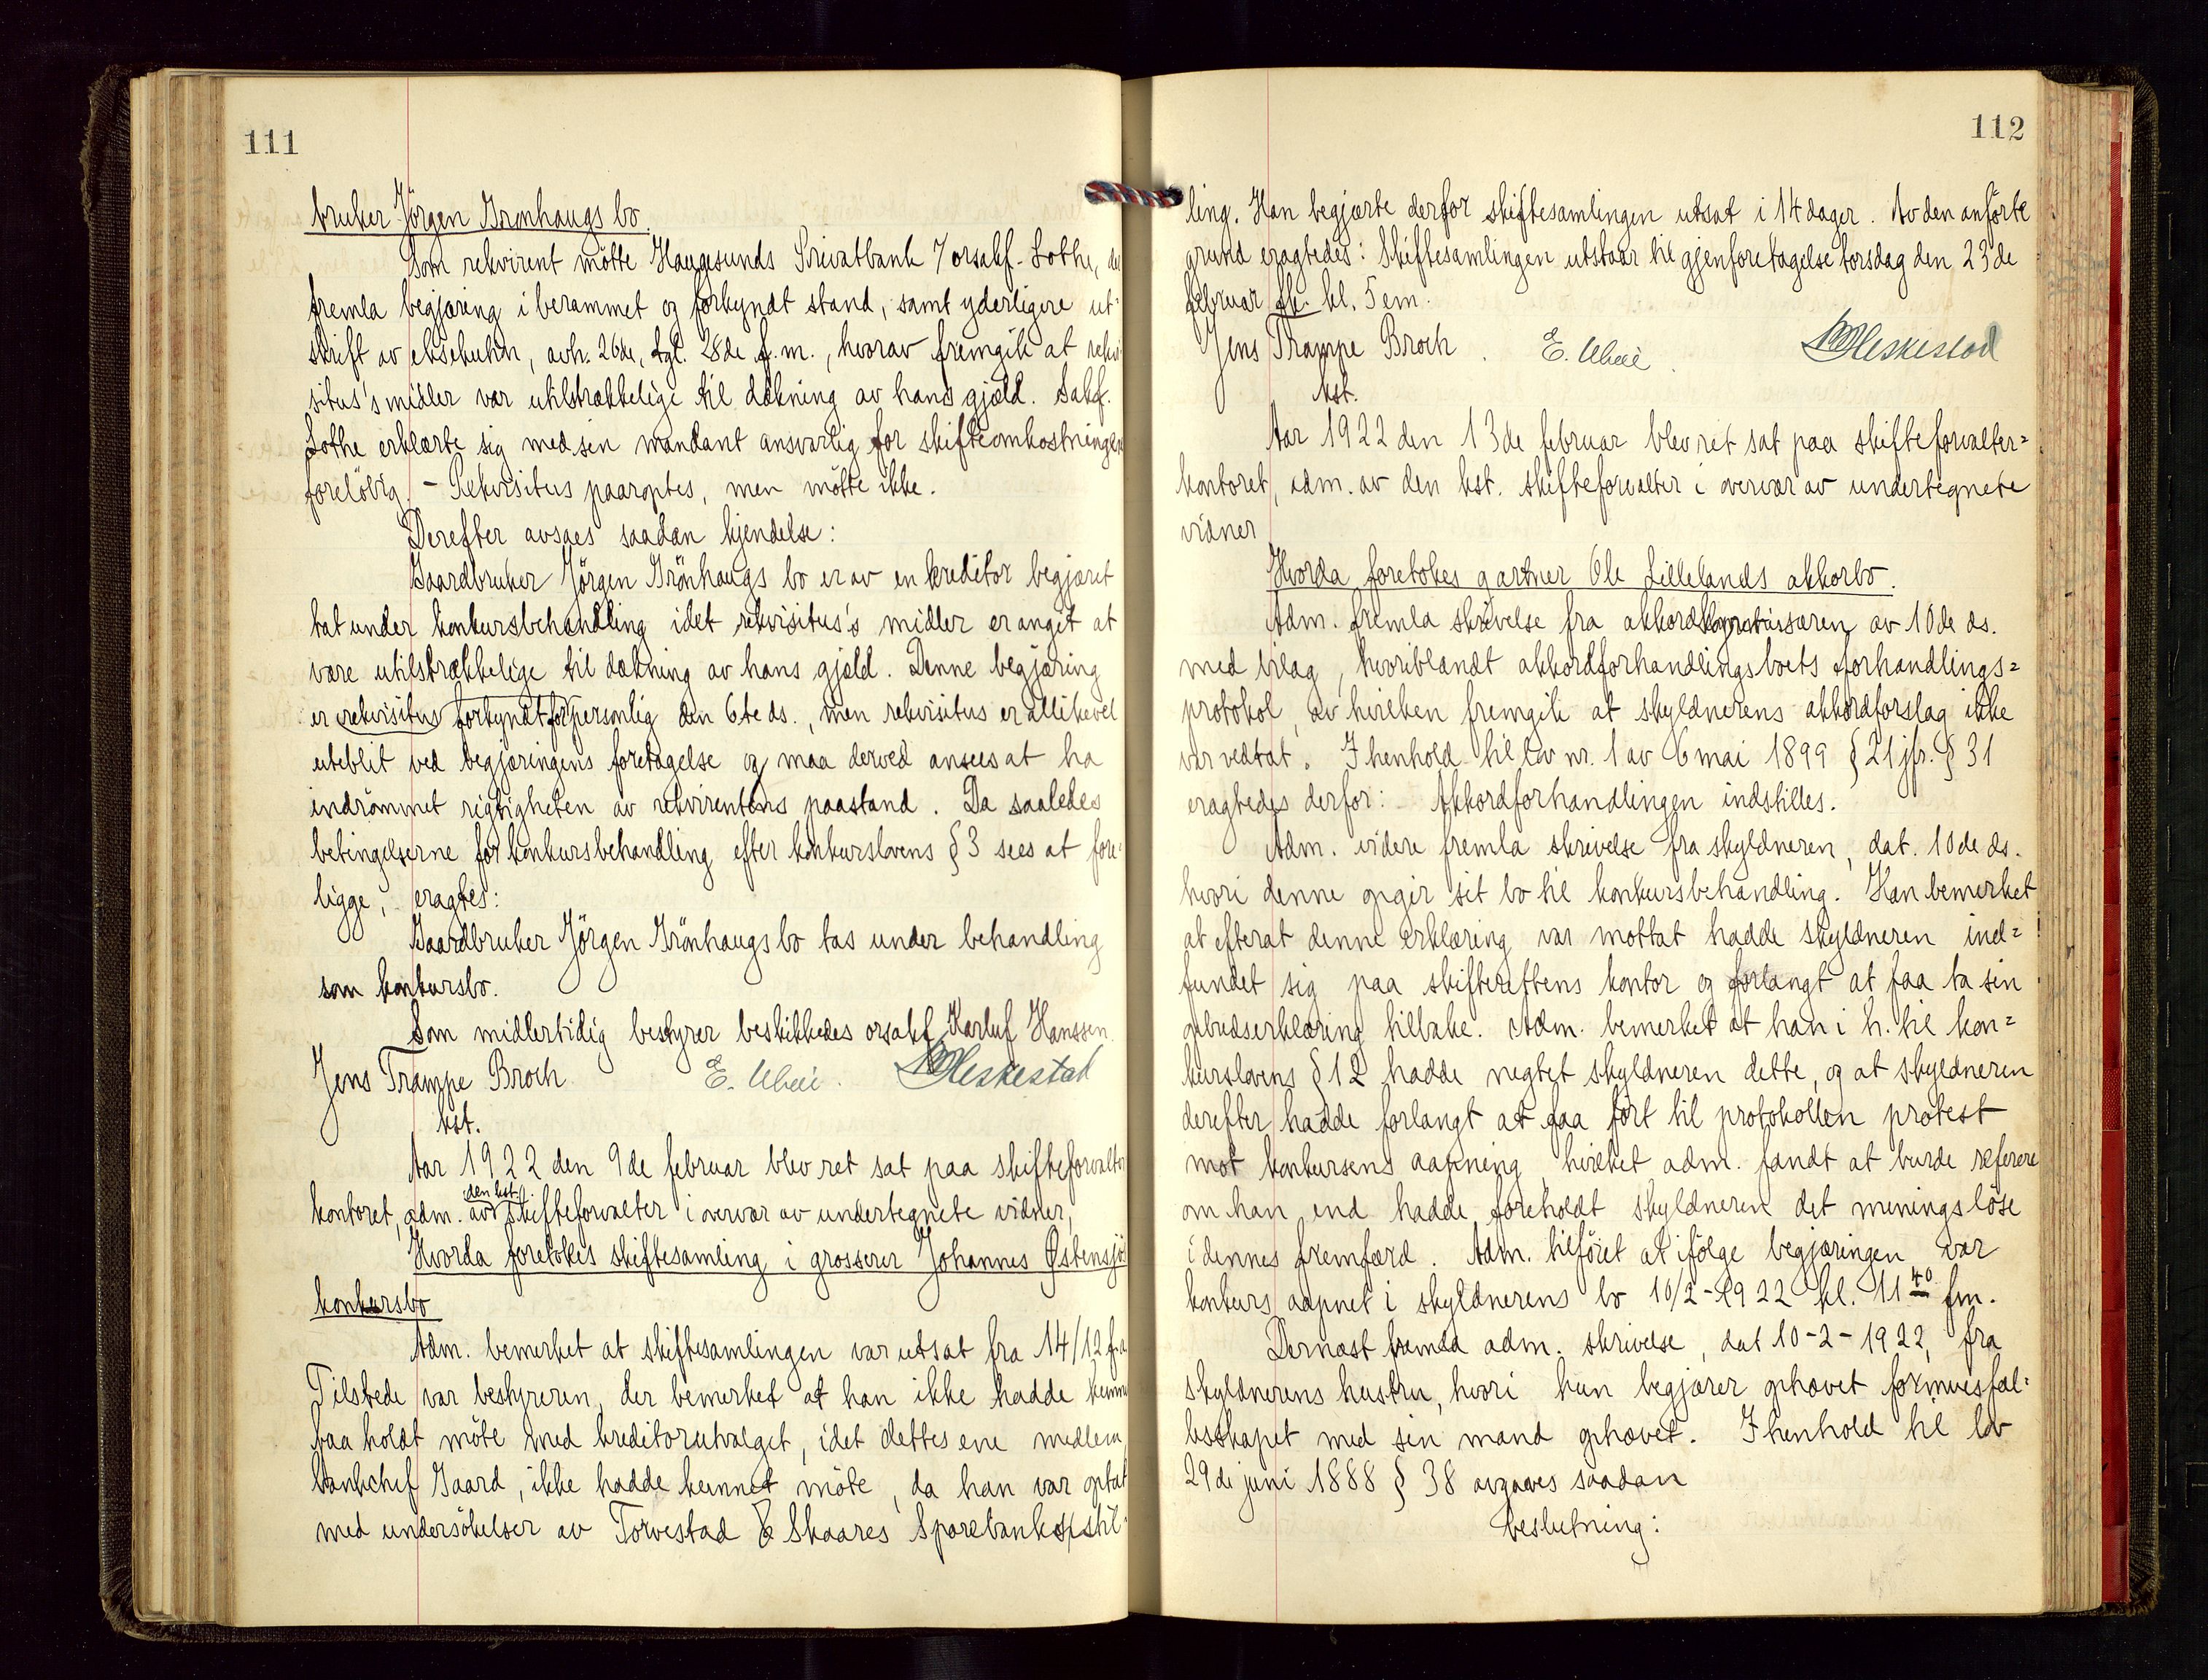 111
bruker Jörgen Grönhaugs bo.
Som rekvirent mötte Haugesunds Privatbank v/ orsakf. Lothe, der
fremla begjæring i berammet og forkyndt stand, samt yderligere ut-
skrift av eksekutin, avh. 26de, tgl. 28de f.m., hvorav fremgik at rekvi-
situs's midler var utilstrækkelige til dækning av hans gjæld. Sakf.
Lothe erklærte sig med sin mandant ansvarlig for skifteomkostningene
foreløbig. - Rekvisitus paaroptes, men mötte ikke.
Derefter avsaes saadan kjendelse:
Gaardbruker Jörgen Grönhaugs bo er av en kreditor begjæret
tat under konkursbehandling idet rekvisitus's midler er angit at
være utilstrækkelige til dækning av hans gjæld. Denne begjæring
er rekvisitus forkyndt for personlig den 6te ds., men rekvisitus er allikevel
uteblit ved begjæringens foretagelse og maa derved ansees at ha
indrömmet rigtigheten av rekvirentens paastand. Da saaledes
betingelserne for konkursbehandling efter konkurslovens § 3 sees at fore-
ligge, eragtes:
Gaardbruker Jörgen Grönhaugs bo tas under behandling
som konkursbo.
Som midlertidig bestyrer beskikkedes orsakf. Karluf Hanssen.
Jens Trampe Broch E. Heskestad
kst.
Aar 1922 den 9de februar blev ret sat paa skifteforvalter
kontoret, adm. av den kst. skifteforvalter i overvær av undertegnete vidner,
Hvorda foretokes skiftesamling i grosserer Johannes Østensjös
konkursbo
Adm. bemerket at skiftesamlingen var utsat fra 14/12 f.a.
Tilstede var bestyreren, der bemerket at han ikke hadde kunnet
faa holdt möte med kreditorutvalget, idet dettes ene medlem,
bankchef Gaard, ikke hadde kunnet möte, da han var optat
med undersökelser av Torvestad & Skaares Sparebanks stil-
112
ling. Han begjærte derfor skiftesamlingen utsat i 14 dager. Av den anförte
grund eragtedes: Skiftesamlingen utstaar til gjenforetagelse torsdag den 23de
februar kl. 5 em.
Jens Trampe Broch. E. Heskestad
kst.
Aar 1922 den 13de februar blev ret sat paa skifteforvalter=
kontoret, adm. av den kst. skifteforvalter i overvær av undertegnete
vidner
Hvorda foretokes gartner Ole Lillelands akkorbo.
Adm. fremla skrivelse fra akkordkommissæren av 10de ds.
med bilag, hvoriblandt akkordforhandlingsboets forhandlings=
protokol, av hvilken fremgik at skyldnerens akkordforslag ikke
var vedtat. I henhold til lov nr. 1 av 6 mai 1899 § 21 jfr. § 31
eragtedes derfor: Akkordforhandlingen indstilles.
Adm. videre fremla skrivelse fra skyldneren, dat. 10de ds.
hvori denne opgir sit bo til konkursbehandling. Han bemerket
at efterat denne erklæring var mottat hadde skyldneren ind=
fundet sig paa skifterettens kontor og forlangt at faa ta sin
opbudserklæring tilbake. Adm. bemerket at han i h. til kon=
kurslovens § 12 hadde negtet skyldneren dette, og at skyldneren
derefter hadde forlangt at faa fört til protokollen protest
mot konkursens aapning, hvilket adm. fandt at burde referere
om han end hadde foreholdt skyldneren det meningslöse
i dennes fremfærd. Adm. tilföiet at ifölge begjæringen var
konkurs aapnet i skyldnerens bo 10/2-1922 kl. 11 40 fm.
Dernæst fremla adm. skrivelse, dat 10-2-1922, fra
skyldnerens hustru, hvori hun begjærer ophævet formuesfæl=
lesskapet med sin mand ophævet. I henhold til lov
29de juni 1888 § 38 avgaves saadan
beslutning: